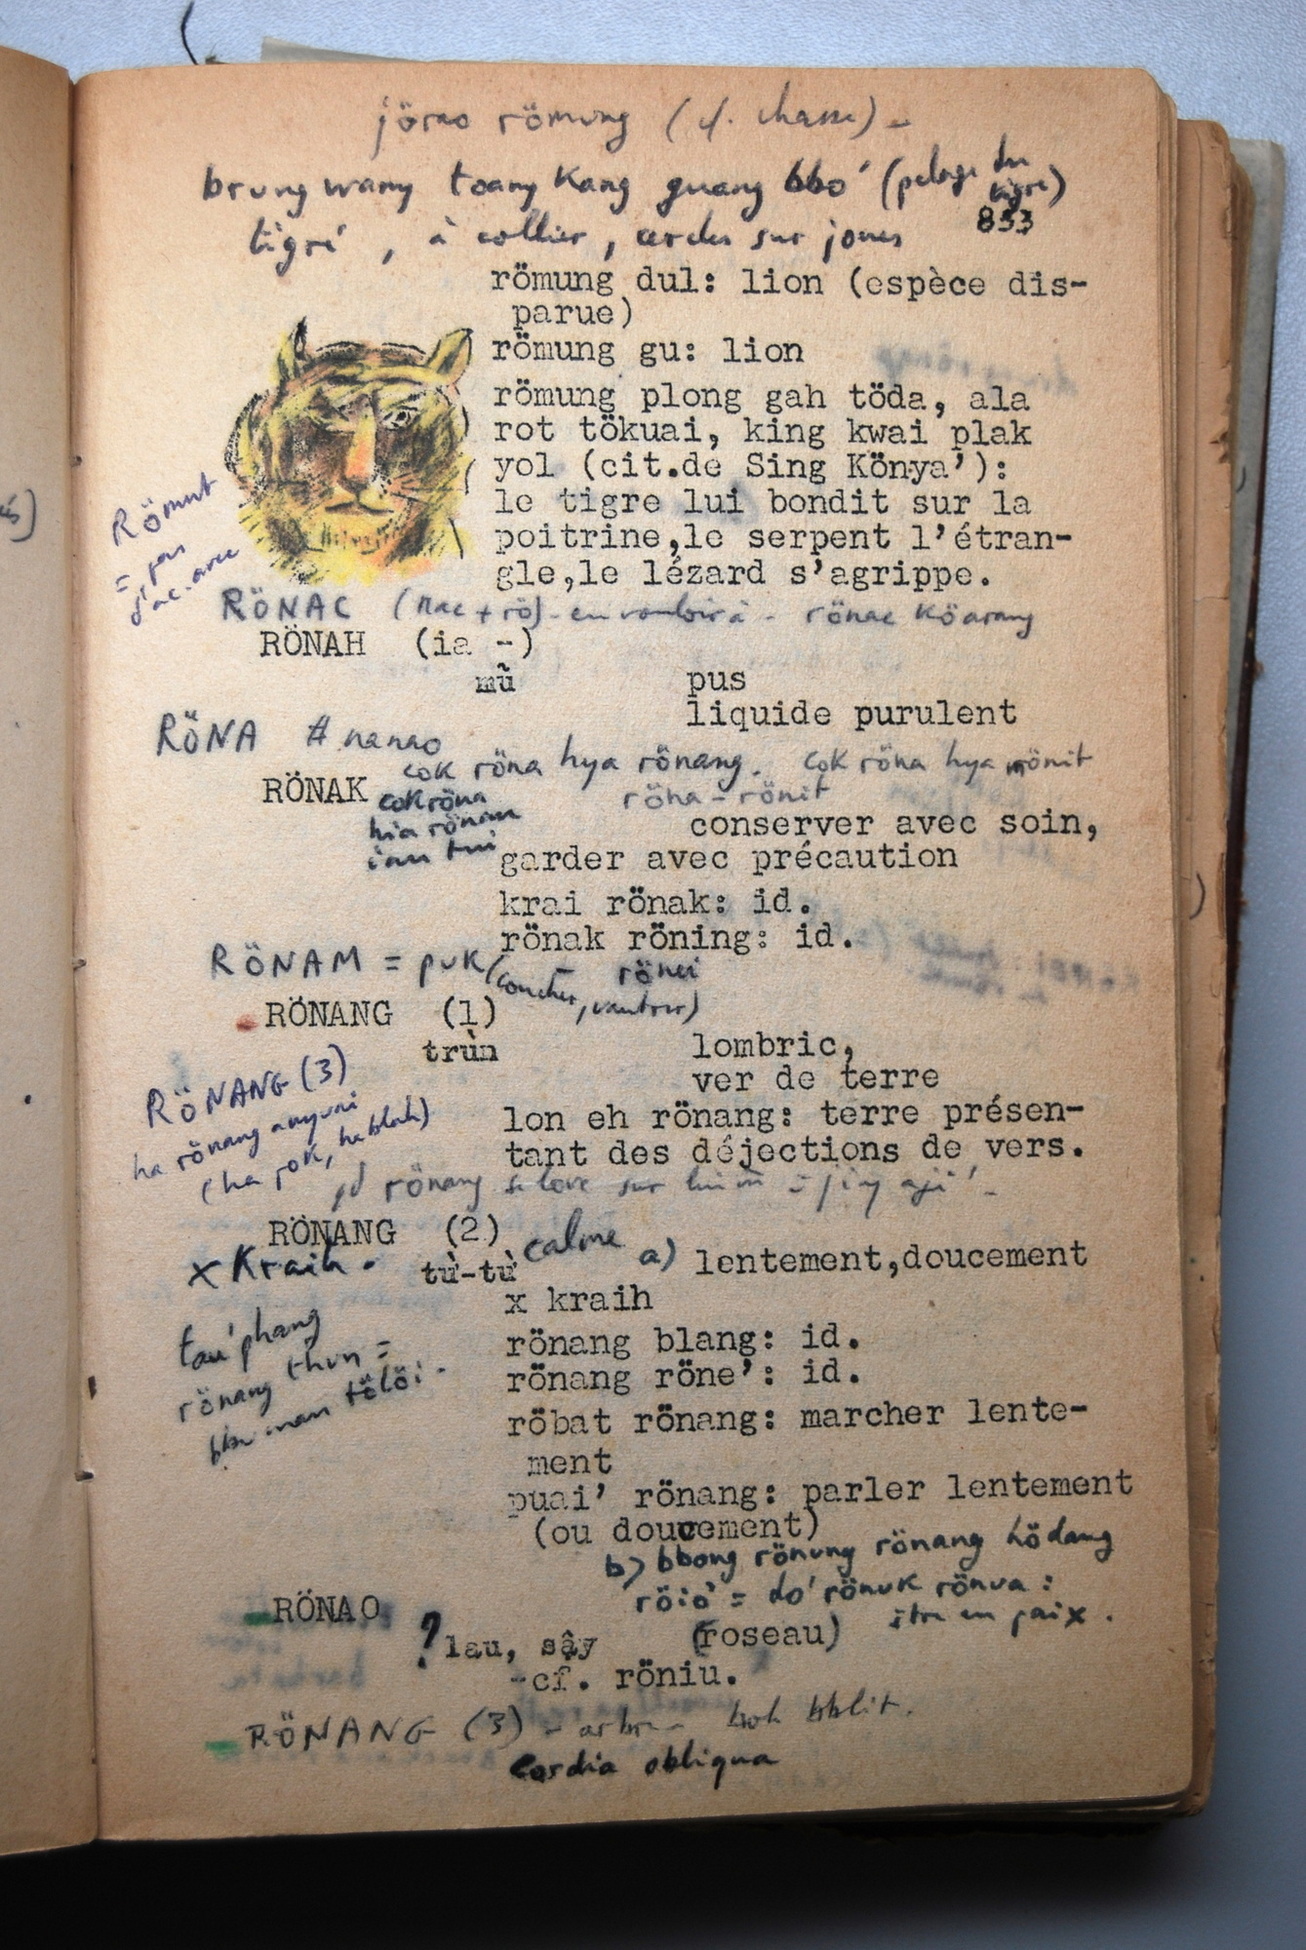 jörao römung (cf. chasse) -
brung wang toang kang guang bbo' (pelage du tigre)
853
tigré, à collier, cercles sur joues
römung dul: lion (espèce dis-
parue)
römung gu: lion
römung plong gah töda, ala
rot tökuai, king kwai plak
yol (cit.de Sing Könya'):
le tigre lui bondit sur la
poitrine,le serpent l'étran-
gle,le lézard s'agrippe.
Römut
= pas
d'ac. avec
RÖNAC (nac + rö) - en vouloir à - rönac köarang
RÖNAH (ia -)
mũ pus
liquide purulent
RÖNA # nanao
cok röna hya rönang. cok röna hya rönit
RÖNAK cok röna röna - rönit
hia rönan
conserver avec soin,
garder avec précaution
krai rönak: id.
rönak röning: id.
RÖNAM = puk (coucher, vautrer)
RÖNANG (1)
trùn lombric,
ver de terre
RÖNANG (3)
ha rönang
lon eh rönang: terre présen-
tant des déjections de vers.
rönang se love sur lui
RÖNANG (2)
x Kraih. từ-từ calme a) lentement,doucement
x kraih
tau'phang
rönang thun =
tölöi.
rönang blang: id.
rönang röne': id.
röbat rönang: marcher lente-
ment
puai' rönang: parler lentement
(ou doucement)
b) bbong rönung rönang hödang
röiò = do' rönuk rönua :
être en paix.
RÖNAO
? lau, sậy (roseau)
-cf. röniu.
RÖNANG (3) - arbre - boh bblit.
Cordia obliqua